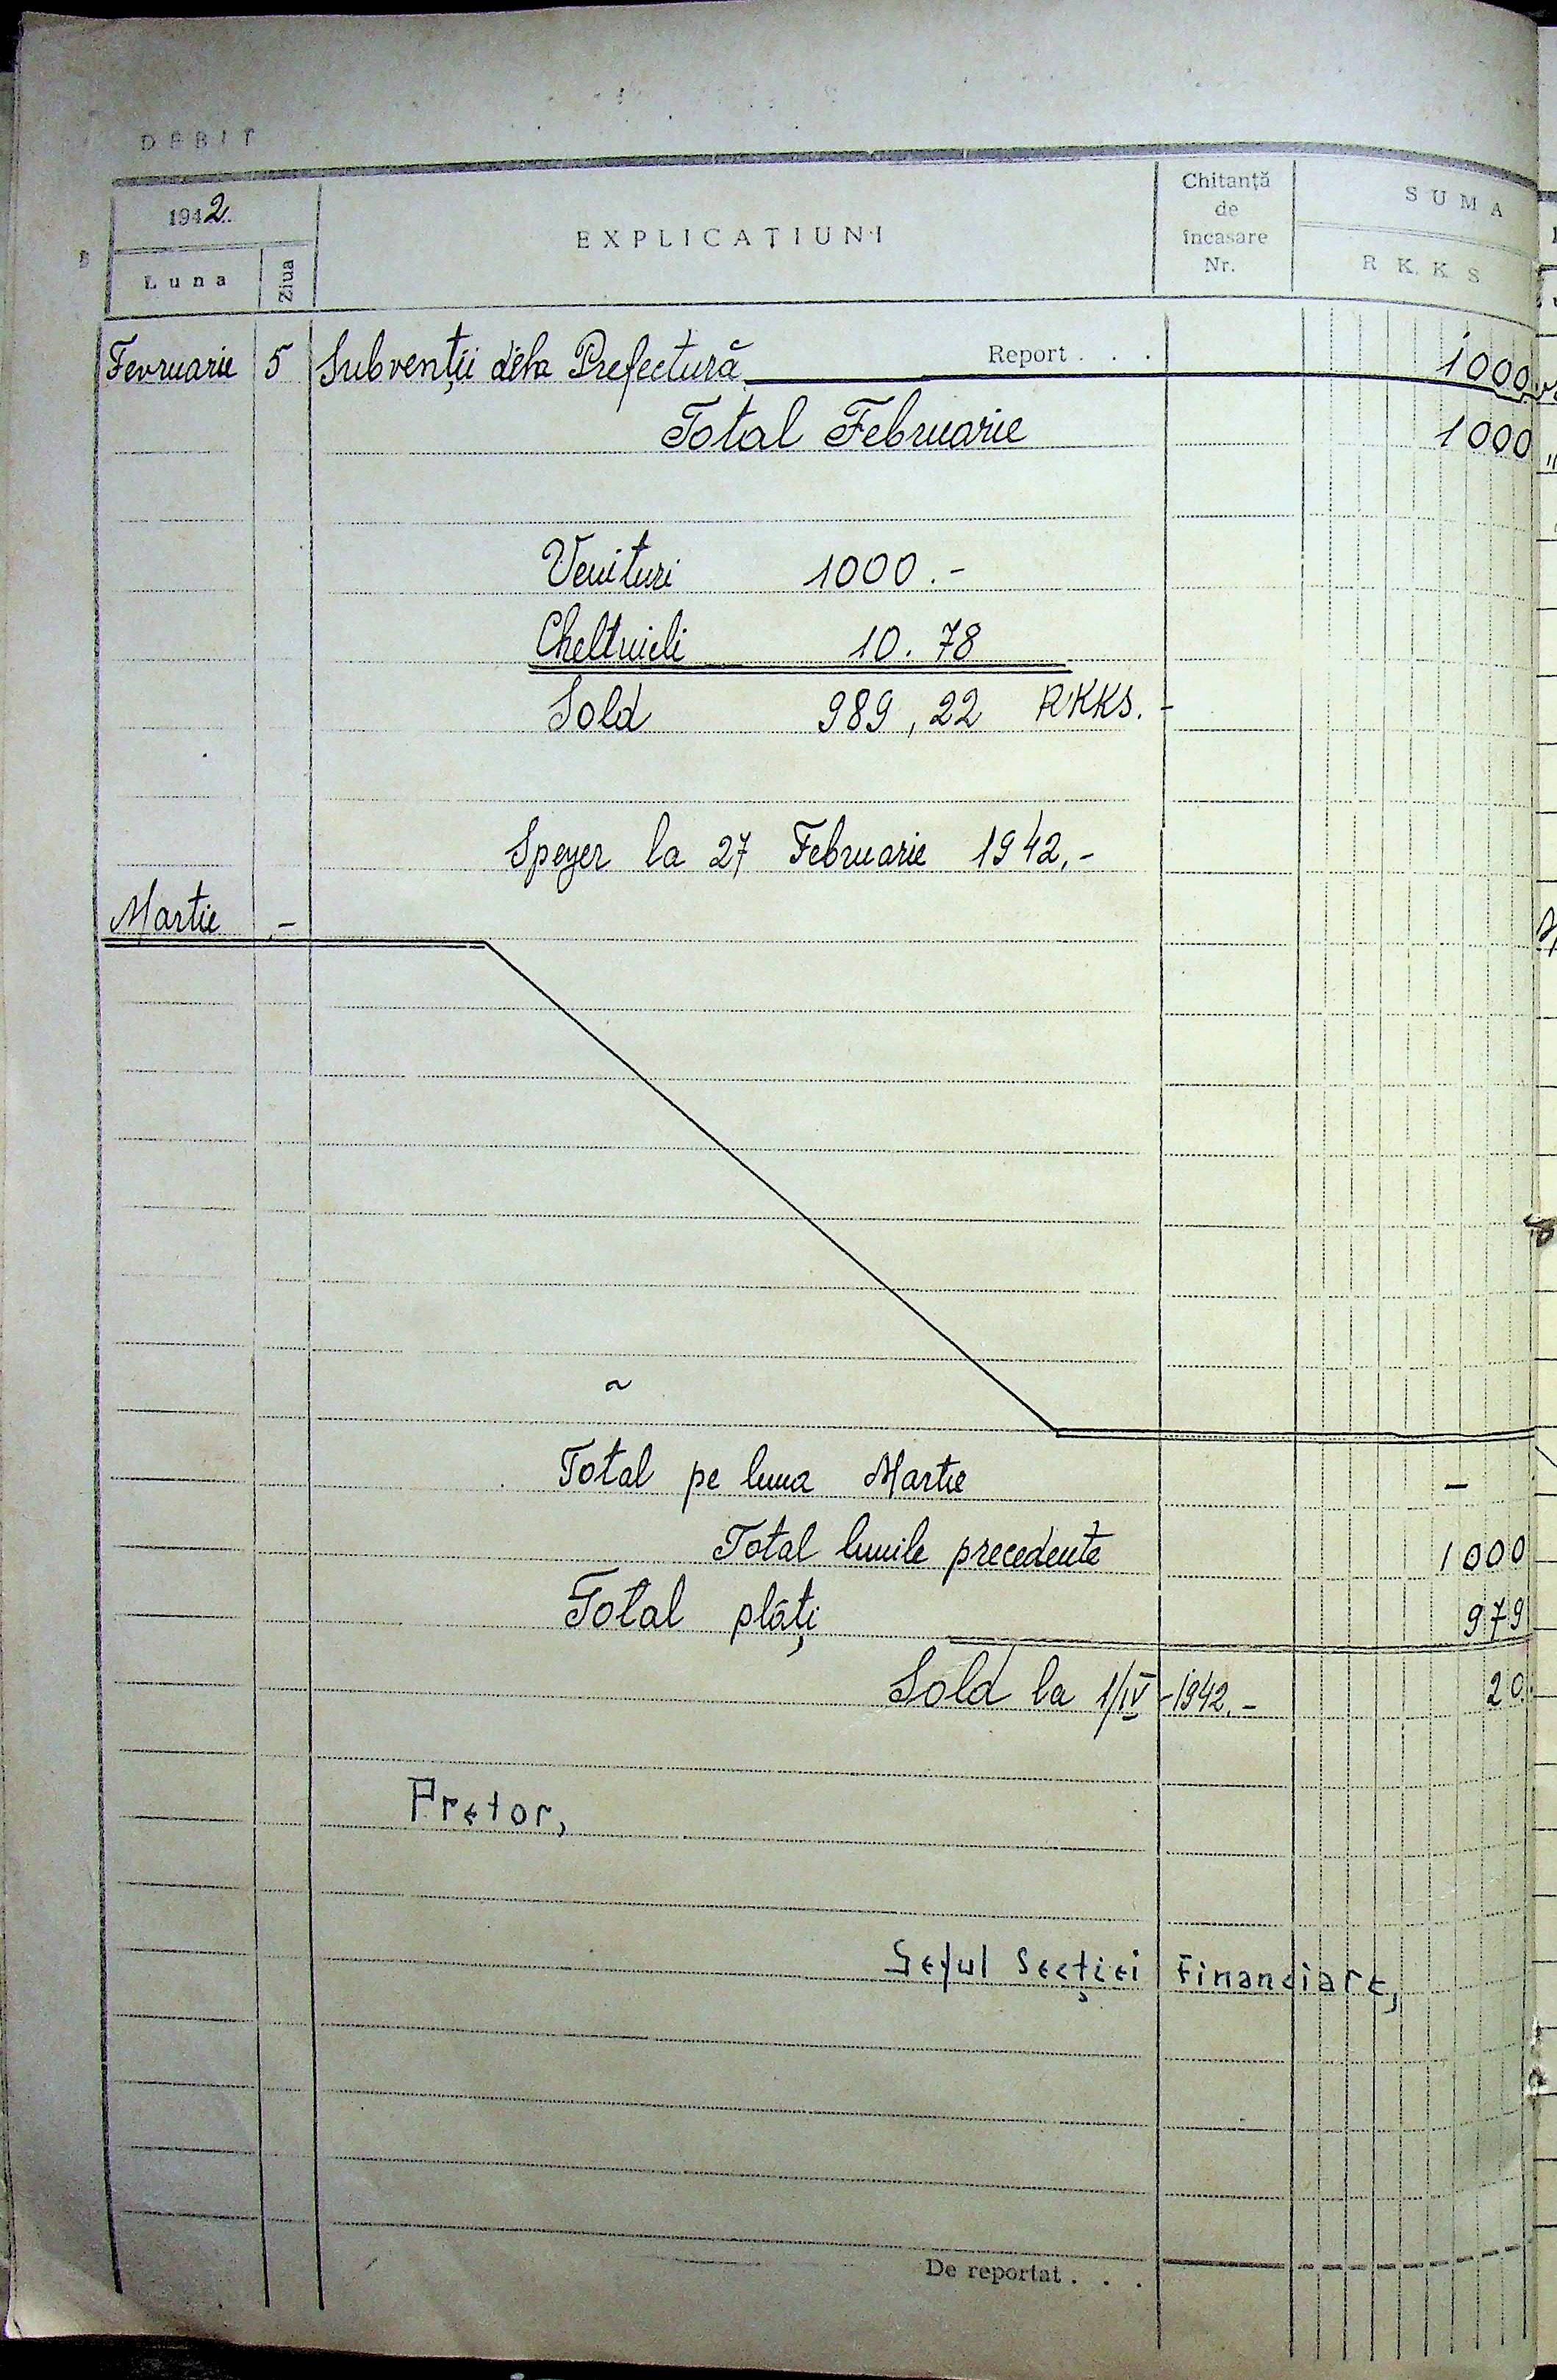 DEBIT
1942.
EXPLICAȚIUNI
Chitanță
de
încasare
Nr.
SUMA
Luna
Ziua
R K. K S
Report . . .
Fevruarie 5 Subvenții dela Prefectură 1000
Total Februarie 1000 "
Venituri 1000.-
Cheltuieli 10.78
Sold 989,22 RKKS.-
Speyer la 27 Februarie 1942.-
Martie .-
Total pe luna Martie -
Total lunile precedente 1000
Total plăți 979
Sold la 1/IV-1942.- 20
Pretor,
Șeful Secției Financiare,
De reportat . . .